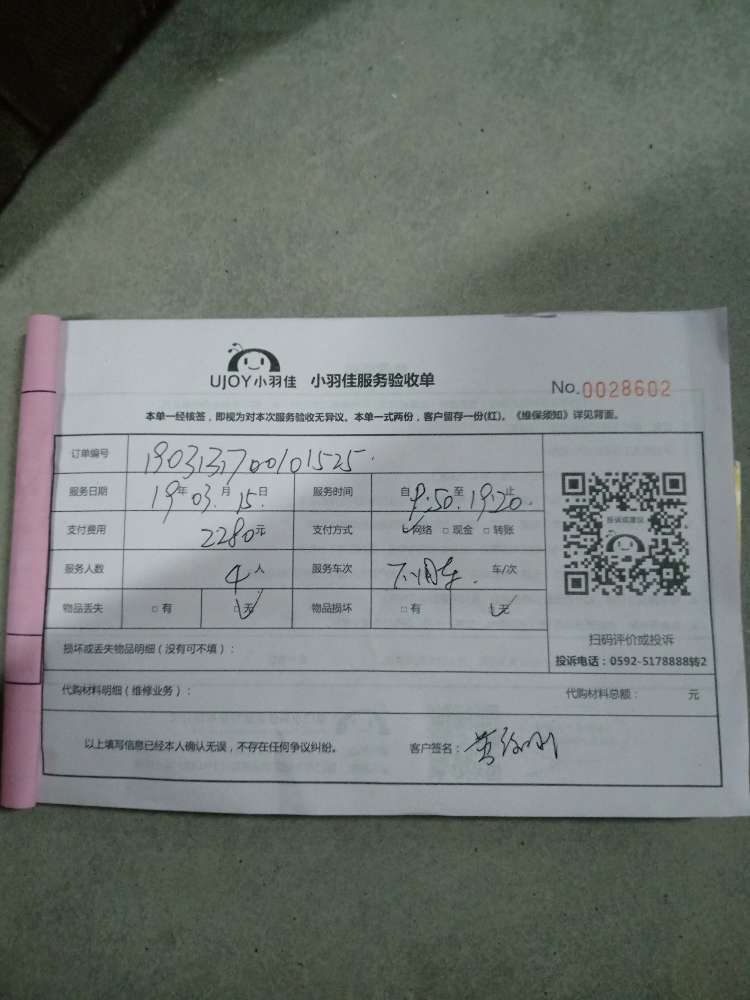 UJOY小羽佳 小羽佳服务验收单
No.0028602
本单一经核签，即视为对本次服务验收无异议。本单一式两份，客户留存一份(红)。《维保须知》详见背面。
订单编号 190313700101525
服务日期 19年03月15日 服务时间 自9:50至19:20止
支付费用 2280元 支付方式 ☑网络 □现金 □转账
服务人数 4人 服务车次 不用车 车/次
物品丢失 □有 ☑无 物品损坏 □有 ☑无
投诉或建议
扫码评价或投诉
投诉电话：0592-5178888转2
损坏或丢失物品明细（没有可不填）：
代购材料明细（维修业务）： 代购材料总额： 元
以上填写信息已经本人确认无误，不存在任何争议纠纷。 客户签名：